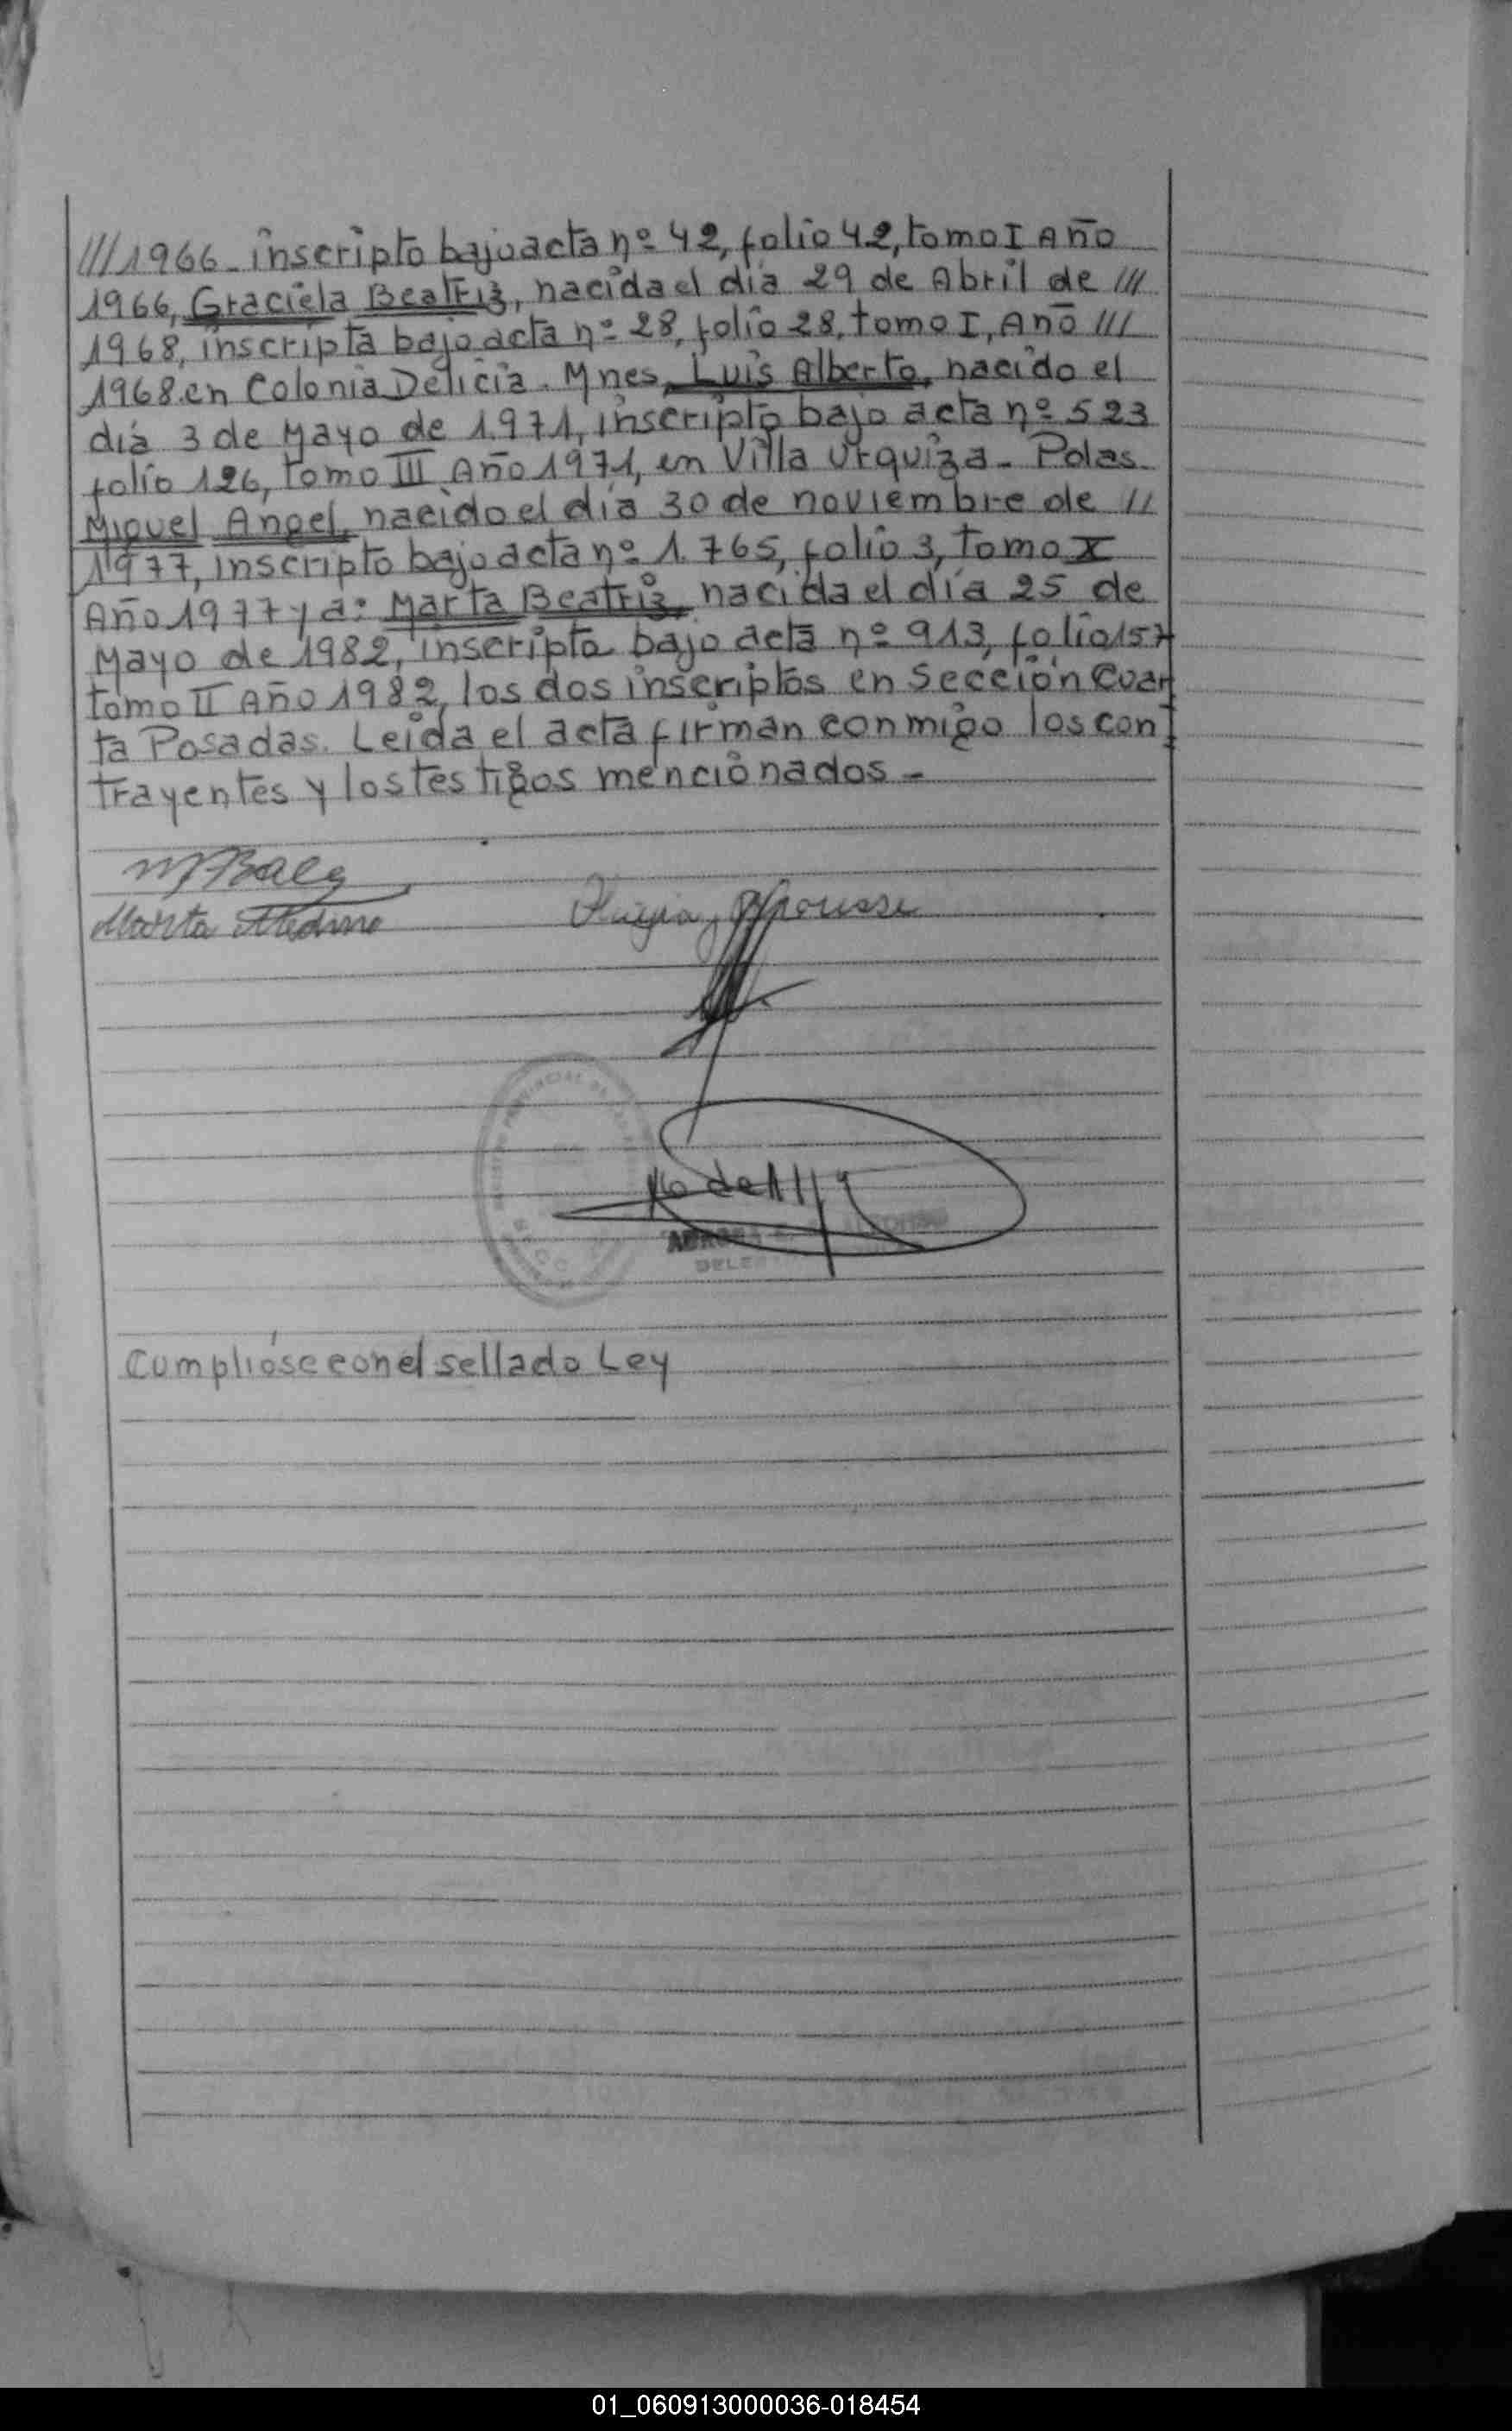 ///1966- inscripto bajo acta nº 42, folio 42, tomo I Año
1966, Graciela Beatriz, nacida el día 29 de Abril de ///
1968, inscripta bajo acta nº 28, folio 28, tomo I, Año ///
1968.en Colonia Delicia. Mnes, Luis Alberto, nacido el
día 3 de Mayo de 1.971, inscripto bajo acta nº 523
folio 126, tomo III Año 1971, en Villa Urquiza- Polas.
Miguel Angel, nacido el día 30 de noviembre de //
1977, inscripto bajo acta nº 1.765, folio 3, tomo X
Año 1977 y a: Marta Beatriz, nacida el día 25 de
Mayo de 1982, inscripta bajo acta nº 913, folio 157
tomo II Año 1982, los dos inscriptos en Sección Cuar
ta Posadas. Leída el acta firman conmigo los con
trayentes y los testigos mencionados-
M Baez
Marta Medina
Cumplióse con el sellado Ley
01_060913000036-018454